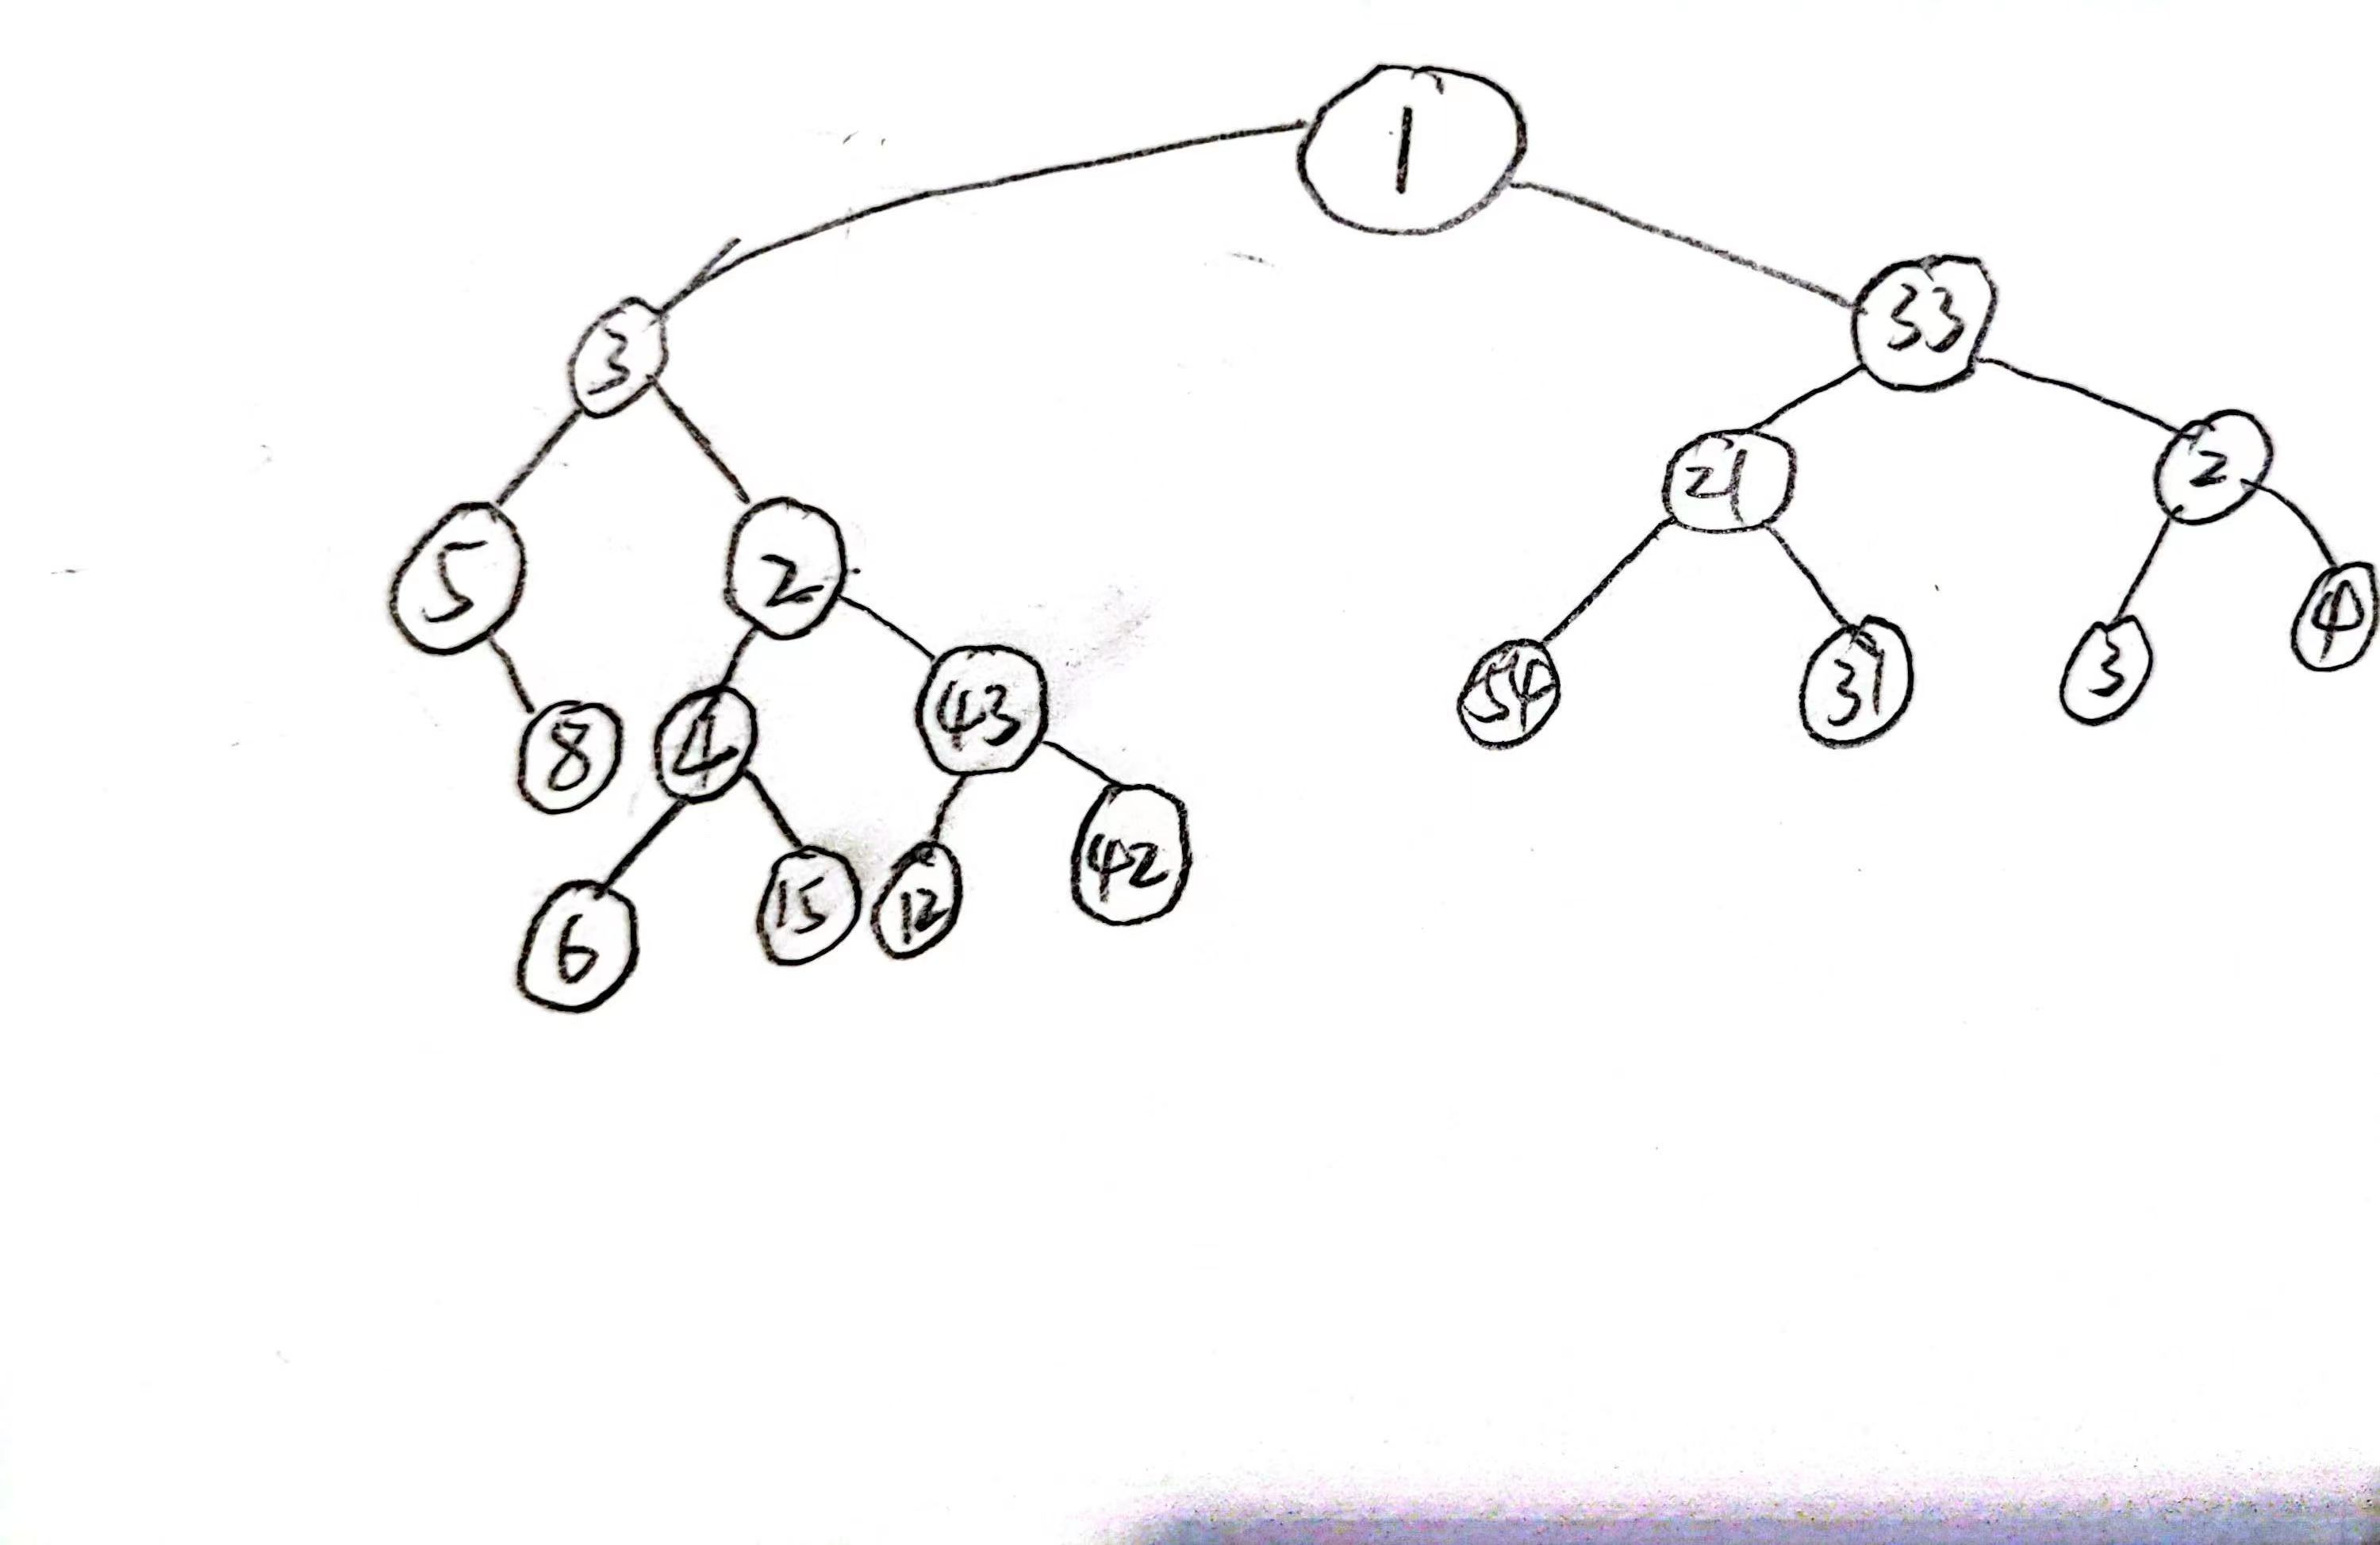 1
3 33
5 2 21 2
8 4 43 54 31 3 4
6 15 12 42